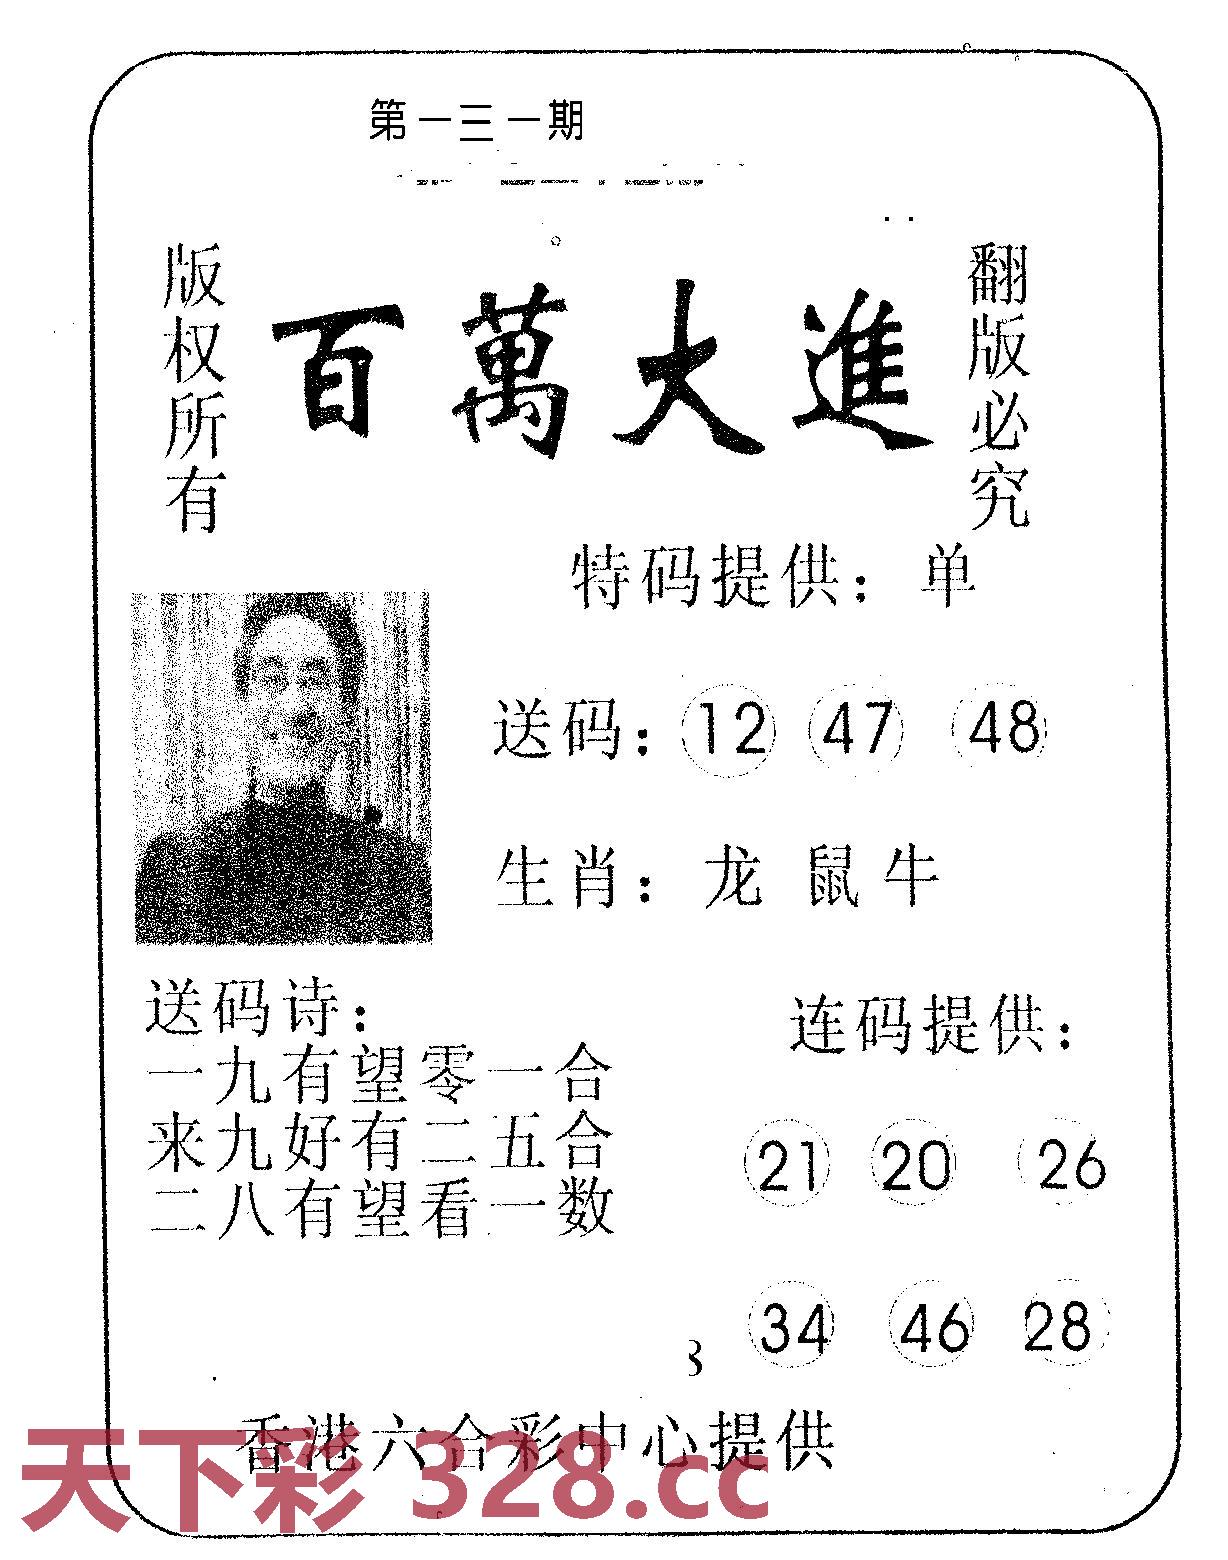 第一三一期
版权所有
百萬大進
翻版必究
特码提供：单
送码：12 47 48
生肖：龙 鼠 牛
送码诗：
一九有望零一合
来九好有二五合
二八有望看一数
连码提供：
21 20 26
34 46 28
香港六合彩中心提供
天下彩 328.cc